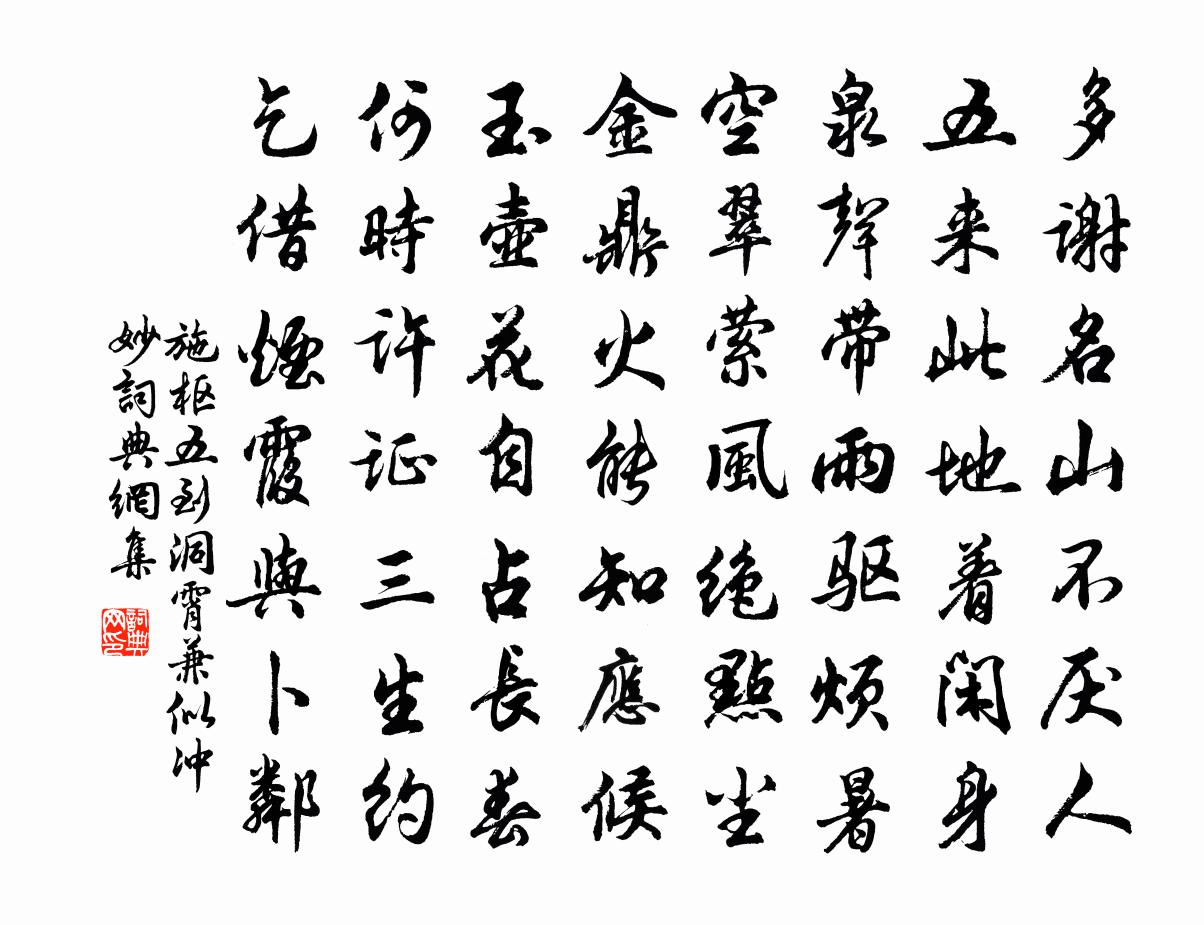 多谢名山不厌人
五来此地着闲身
泉聲带雨驱烦暑
空翠萦風绝點尘
金鼎火能知應候
玉壺花自占長春
何時許证三生約
乞借煙霞與卜鄰
施枢五到洞霄兼似冲
妙詞典網集
詞典网印